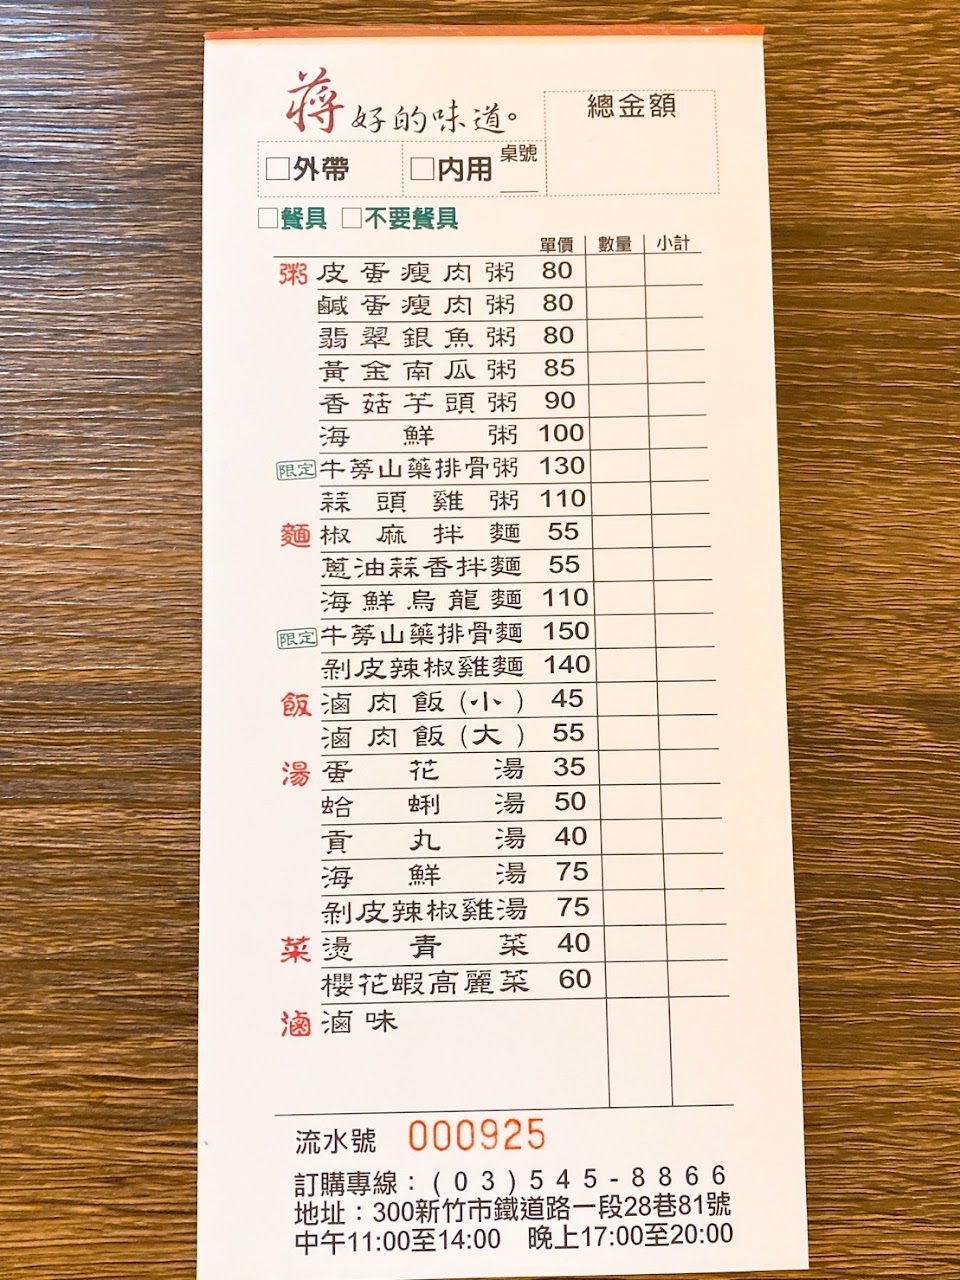 蔣好的味道。
總金額
□外帶 □內用 桌號
□餐具 □不要餐具
單價 數量 小計
粥 皮蛋瘦肉粥 80
鹹蛋瘦肉粥 80
翡翠銀魚粥 80
黃金南瓜粥 85
香菇芋頭粥 90
海鮮粥 100
限定 牛蒡山藥排骨粥 130
蒜頭雞粥 110
麵 椒麻拌麵 55
蔥油蒜香拌麵 55
海鮮烏龍麵 110
限定 牛蒡山藥排骨麵 150
剝皮辣椒雞麵 140
飯 滷肉飯(小) 45
滷肉飯(大) 55
湯 蛋花湯 35
蛤蜊湯 50
貢丸湯 40
海鮮湯 75
剝皮辣椒雞湯 75
菜 燙青菜 40
櫻花蝦高麗菜 60
滷 滷味
流水號 000925
訂購專線：(03)545-8866
地址：300新竹市鐵道路一段28巷81號
中午11:00至14:00 晚上17:00至20:00